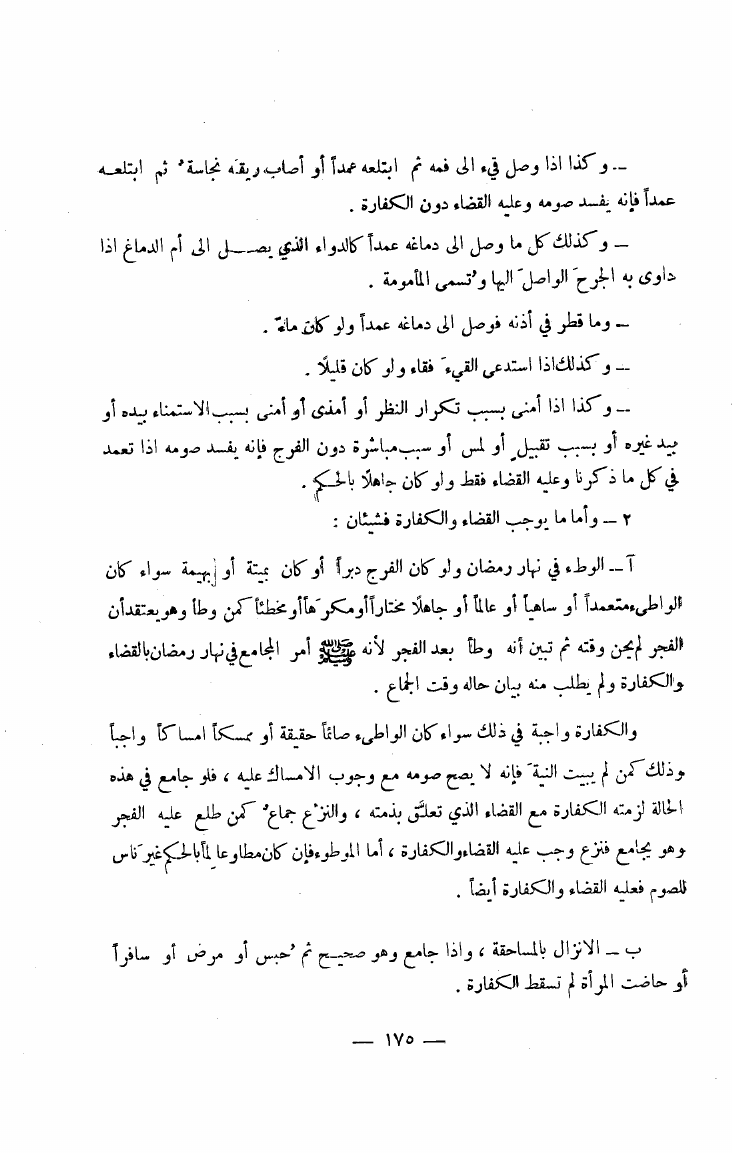 ــ وكذا اذا وصل قيء الى فمه ثم ابتلعه عمداً أو أصاب ريقَه نجاسة ُ ثم ابتلعــه
عمداً فإنه يفسد صومه وعليه القضاء دون الكفارة .
ــ وكذلك كل ما وصل الى دماغه عمداً كالدواء الذي يصــل الى أم الدماغ اذا
داوى به الجرحَ الواصلَ اليها وتُسمى المأمومة .
ــ وما قطر في أذنه فوصل الى دماغه عمداً ولو كان ماءً .
ــ وكذلك اذا استدعى القيءَ فقاء ولو كان قليلًا .
ــ وكذا اذا أمنى بسبب تكرار النظر أو أمذى أو أمنى بسبب الاستمناء بيده أو
بيد غيره أو بسبب تقبيلٍ أو لمس أو سبب مباشرة دون الفرج فإنه يفسد صومه اذا تعمد
في كل ما ذكرنا وعليه القضاء فقط ولو كان جاهلًا بالحكم .
٢ ــ وأما ما يوجب القضاء والكفارة فشيئان :
آ ــ الوطء في نهار رمضان ولو كان الفرج دبراً أو كان بميتة أو بهيمة سواء كان
الواطىء متعمداً أو ساهياً أو عالماً أو جاهلًا مختاراً أو مكرَهاً أو مخطئاً كمن وطأ وهو يعتقد أن
الفجر لم يحن وقته ثم تبين أنه وطأ بعد الفجر لأنه ﷺ أمر المجامع في نهار رمضان بالقضاء
والكفارة ولم يطلب منه بيان حاله وقت الجماع .
والكفارة واجبة في ذلك سواء كان الواطىء صائماً حقيقة أو ممسكاً امساكاً واجباً
وذلك كمن لم يبيت النيةَ فإنه لا يصح صومه مع وجوب الامساك عليه ، فلو جامع في هذه
الحالة لزمته الكفارة مع القضاء الذي تعلَّق بذمته ، والنزْع جماعٌ كمن طلع عليه الفجر
وهو يجامع فنزع وجب عليه القضاء والكفارة ، أما الموطوء فإن كان مطاوعا لمأ بالحكم غيرَ ناس
للصوم فعليه القضاء والكفارة أيضاً .
ب ــ الانزال بالمساحقة ، واذا جامع وهو صحيــح ثم حُبس أو مرض أو سافراً
أو حاضت المرأة لم تسقط الكفارة .
— ١٧٥ —